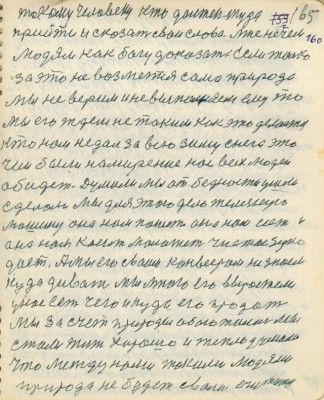 такому человеку кто должен туда 165
прийти и сказать свои слова. Мне нечем 160
людям как богу доказать если только
за это не возмется сама природа
Мы не верим и не выполняем ему то
Мы его ждем не таким как это делается
Кто нам не дал за всю зиму снега это
чем было намерение нас всех людей
обидет. Думали мы от бедности ушли
сделали мы для этого дела железную
машину она нам пашет она нам сеет и
она нам косит молотит чистое зерно
дает. А мы его своим конвеером не знаем
куда девать мы много его вырастим
у нас ест чего и куда его продат
Мы за счет природы обжились мы
стали жит хорошо и тепло думали
что между нами такими людьми
природа не будет своими